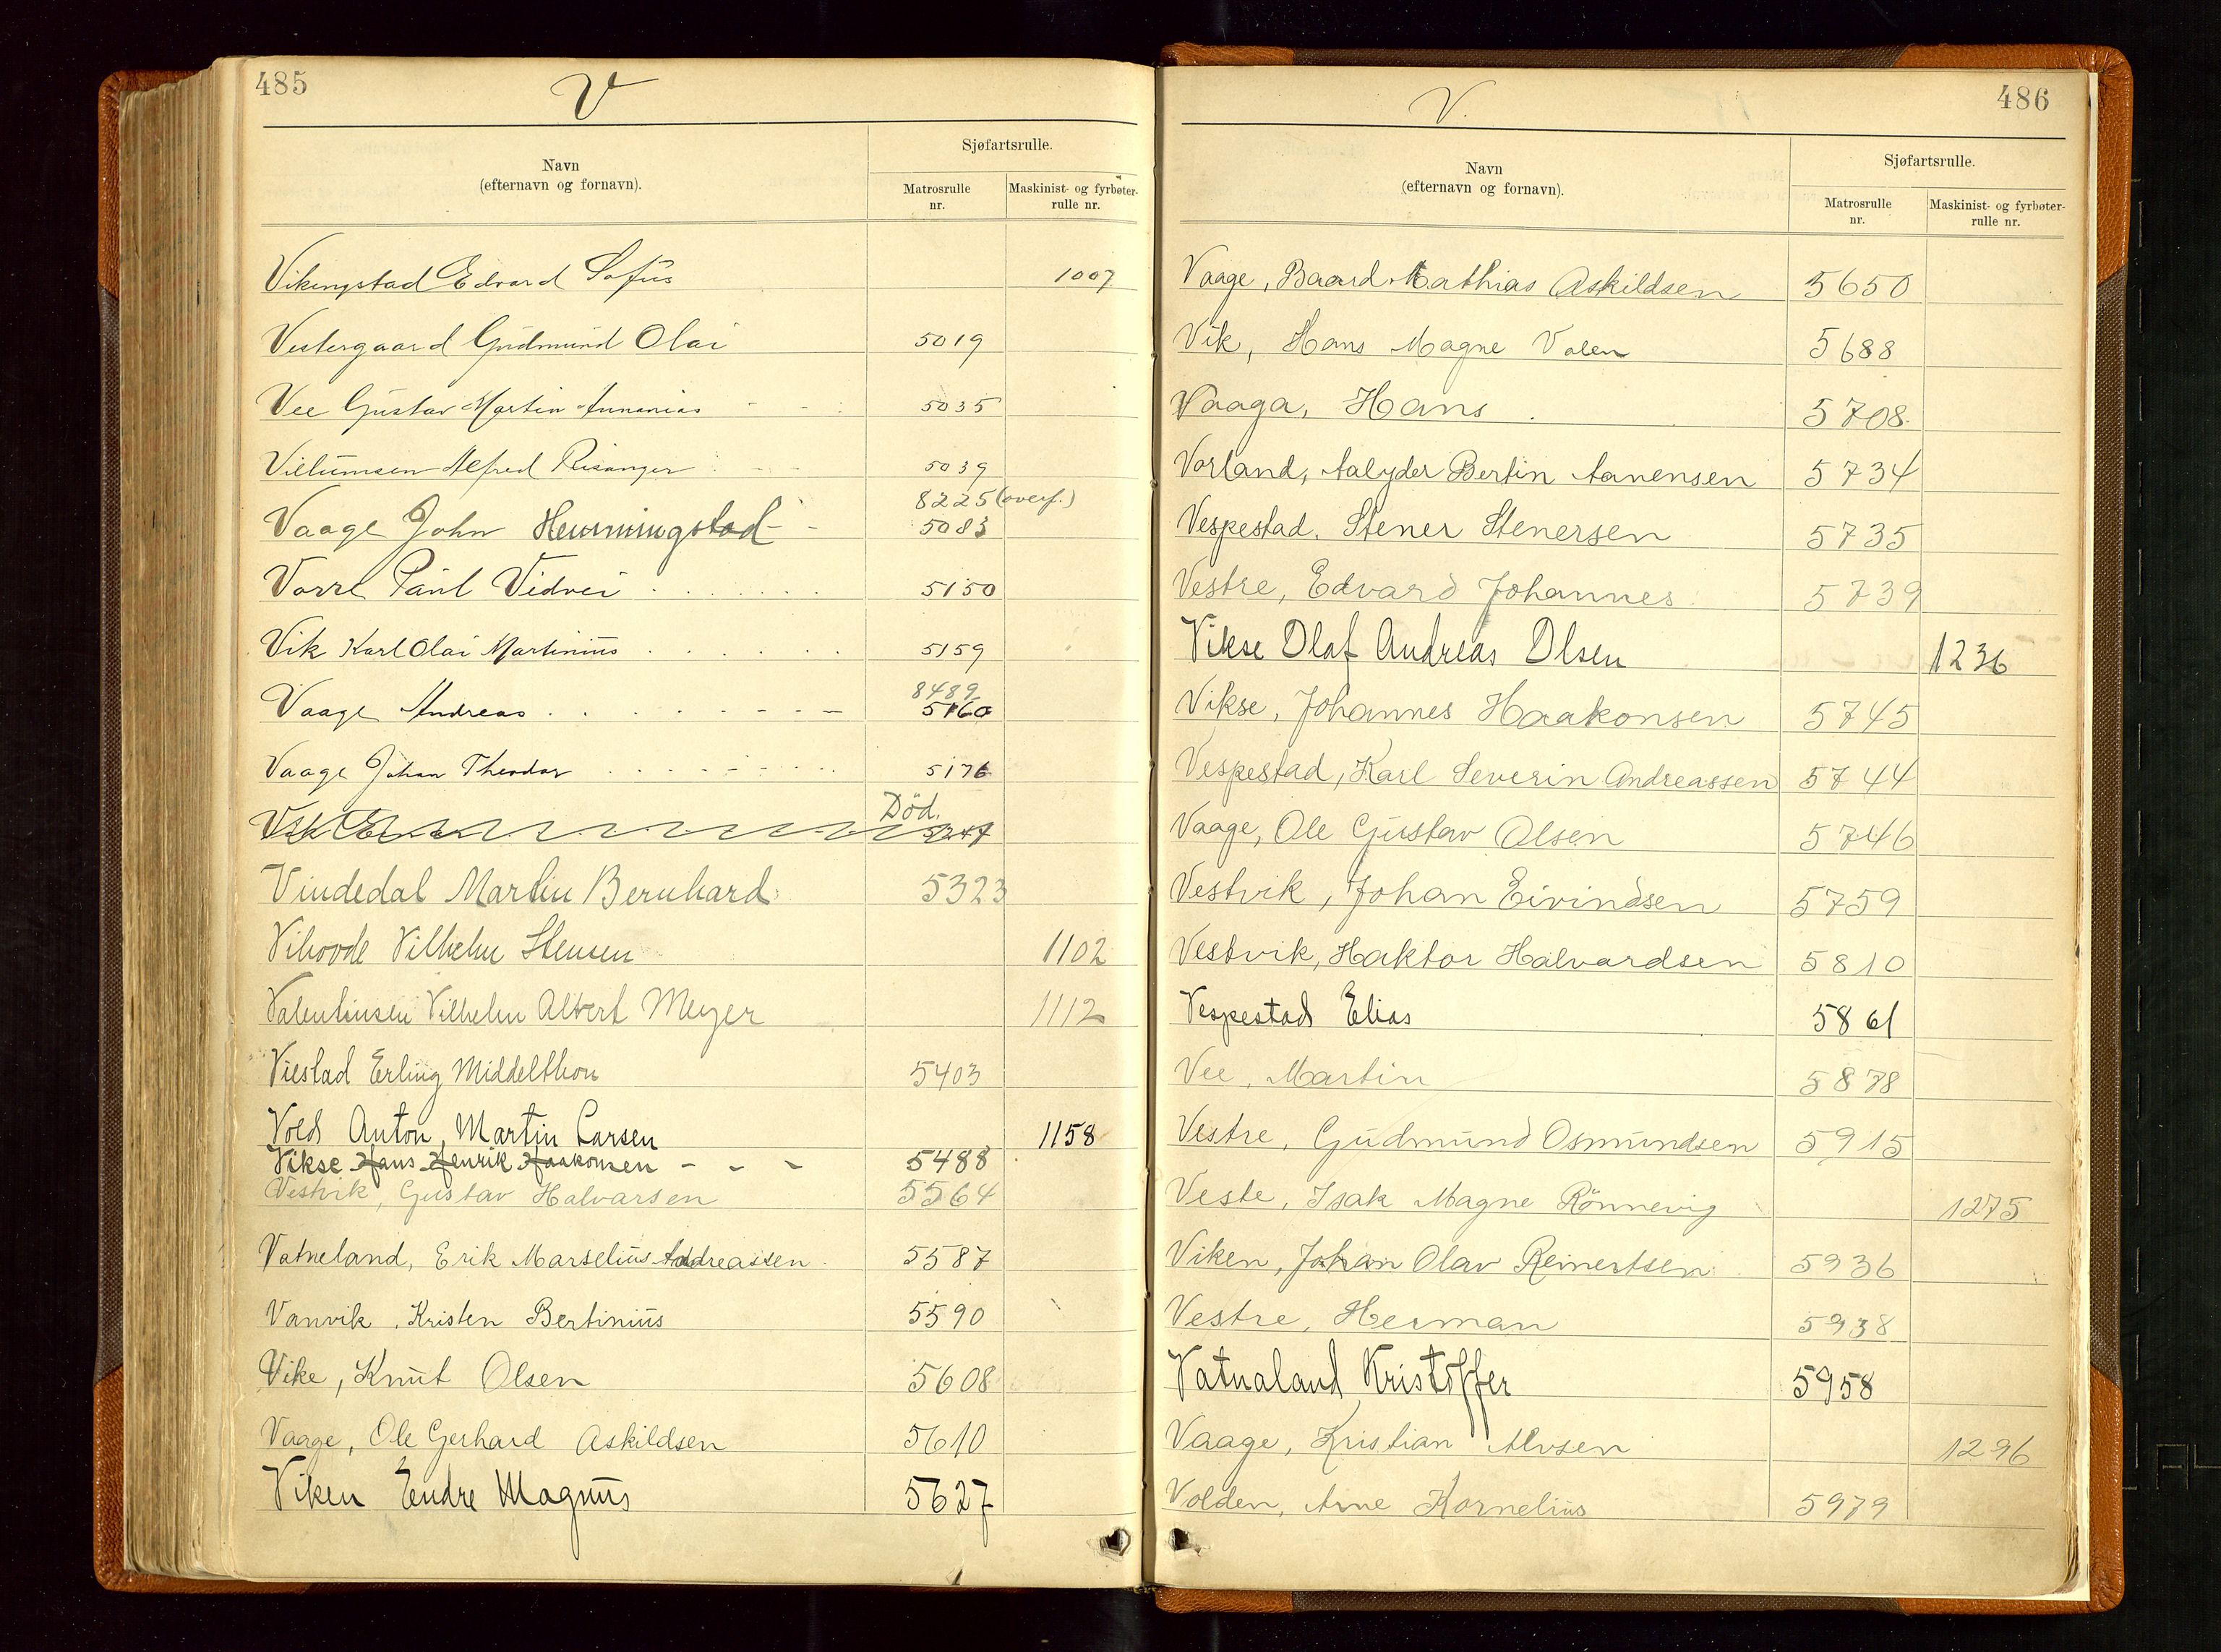 485
V
Sjøfartsrulle.
Navn
(efternavn og fornavn).
Matrosrulle
nr.
Maskinist- og fyrbøter-
rulle nr.
Vikingstad Edvard Sofus 1007
Vestergaard Gudmund Olai 5019
Vee Gustav Martin Annanias 5035
Villumsen Alfred Risanger 5039
8225 (overf.)
Vaage John Henningstad 5083
Vorre Paul Vidvei 5150
Vik Karl Olai Martinius 5159
8489
Vaage Andreas 5160
Vaage Johan Theodor 5176
Død.
Vik
Vindedal Martin Bernhard 5323
Vihovde Vilhelm Stensen 1102
Valentinsen Vilhelm Albert Meyer 1112
Viestad Erling Middelthon 5403
Vold Anton Martin Larsen 1158
Vikse Hans Henrik Haakonsen 5488
Vestvik, Gustav Halvarsen 5564
Vatneland, Erik Marselius Andreassen 5587
Vanvik, Kristen Bertinius 5590
Vike, Knut Olsen 5608
Vaage, Ole Gerhard Askildsen 5610
Viken Endre Magnus 5627
486
V.
Sjøfartsrulle.
Navn
(efternavn og fornavn).
Matrosrulle
nr.
Maskinist- og fyrbøter-
rulle nr.
Vaage, Baard Mathias Askildsen 5650
Vik, Hans Magne Valen 5688
Vaaga, Hans 5708.
Vorland, Aalyder Bertin Aanensen 5734
Vespestad, Stener Stenersen 5735
Vestre, Edvard Johannes 5739
Vikse Olaf Andreas Olsen 1236
Vikse, Johannes Haakonsen 5745
Vespestad, Karl Severin Andreassen 5744
Vaage, Ole Gustav Olsen 5746
Vestvik, Johan Eivindsen 5759
Vestvik, Haktor Halvardsen 5810
Vespestad Elias 5861
Vee, Martin 5878
Vestre, Gudmund Osmundsen 5915
Veste, Isak Magne Rönnevig 1275
Viken, Johan Olav Reinertsen 5936
Vestre, Herman 5938
Vatnaland Kristoffer 5958
Vaage, Kristian Alvsen 1296
Volden, Arne Kornelius 5979